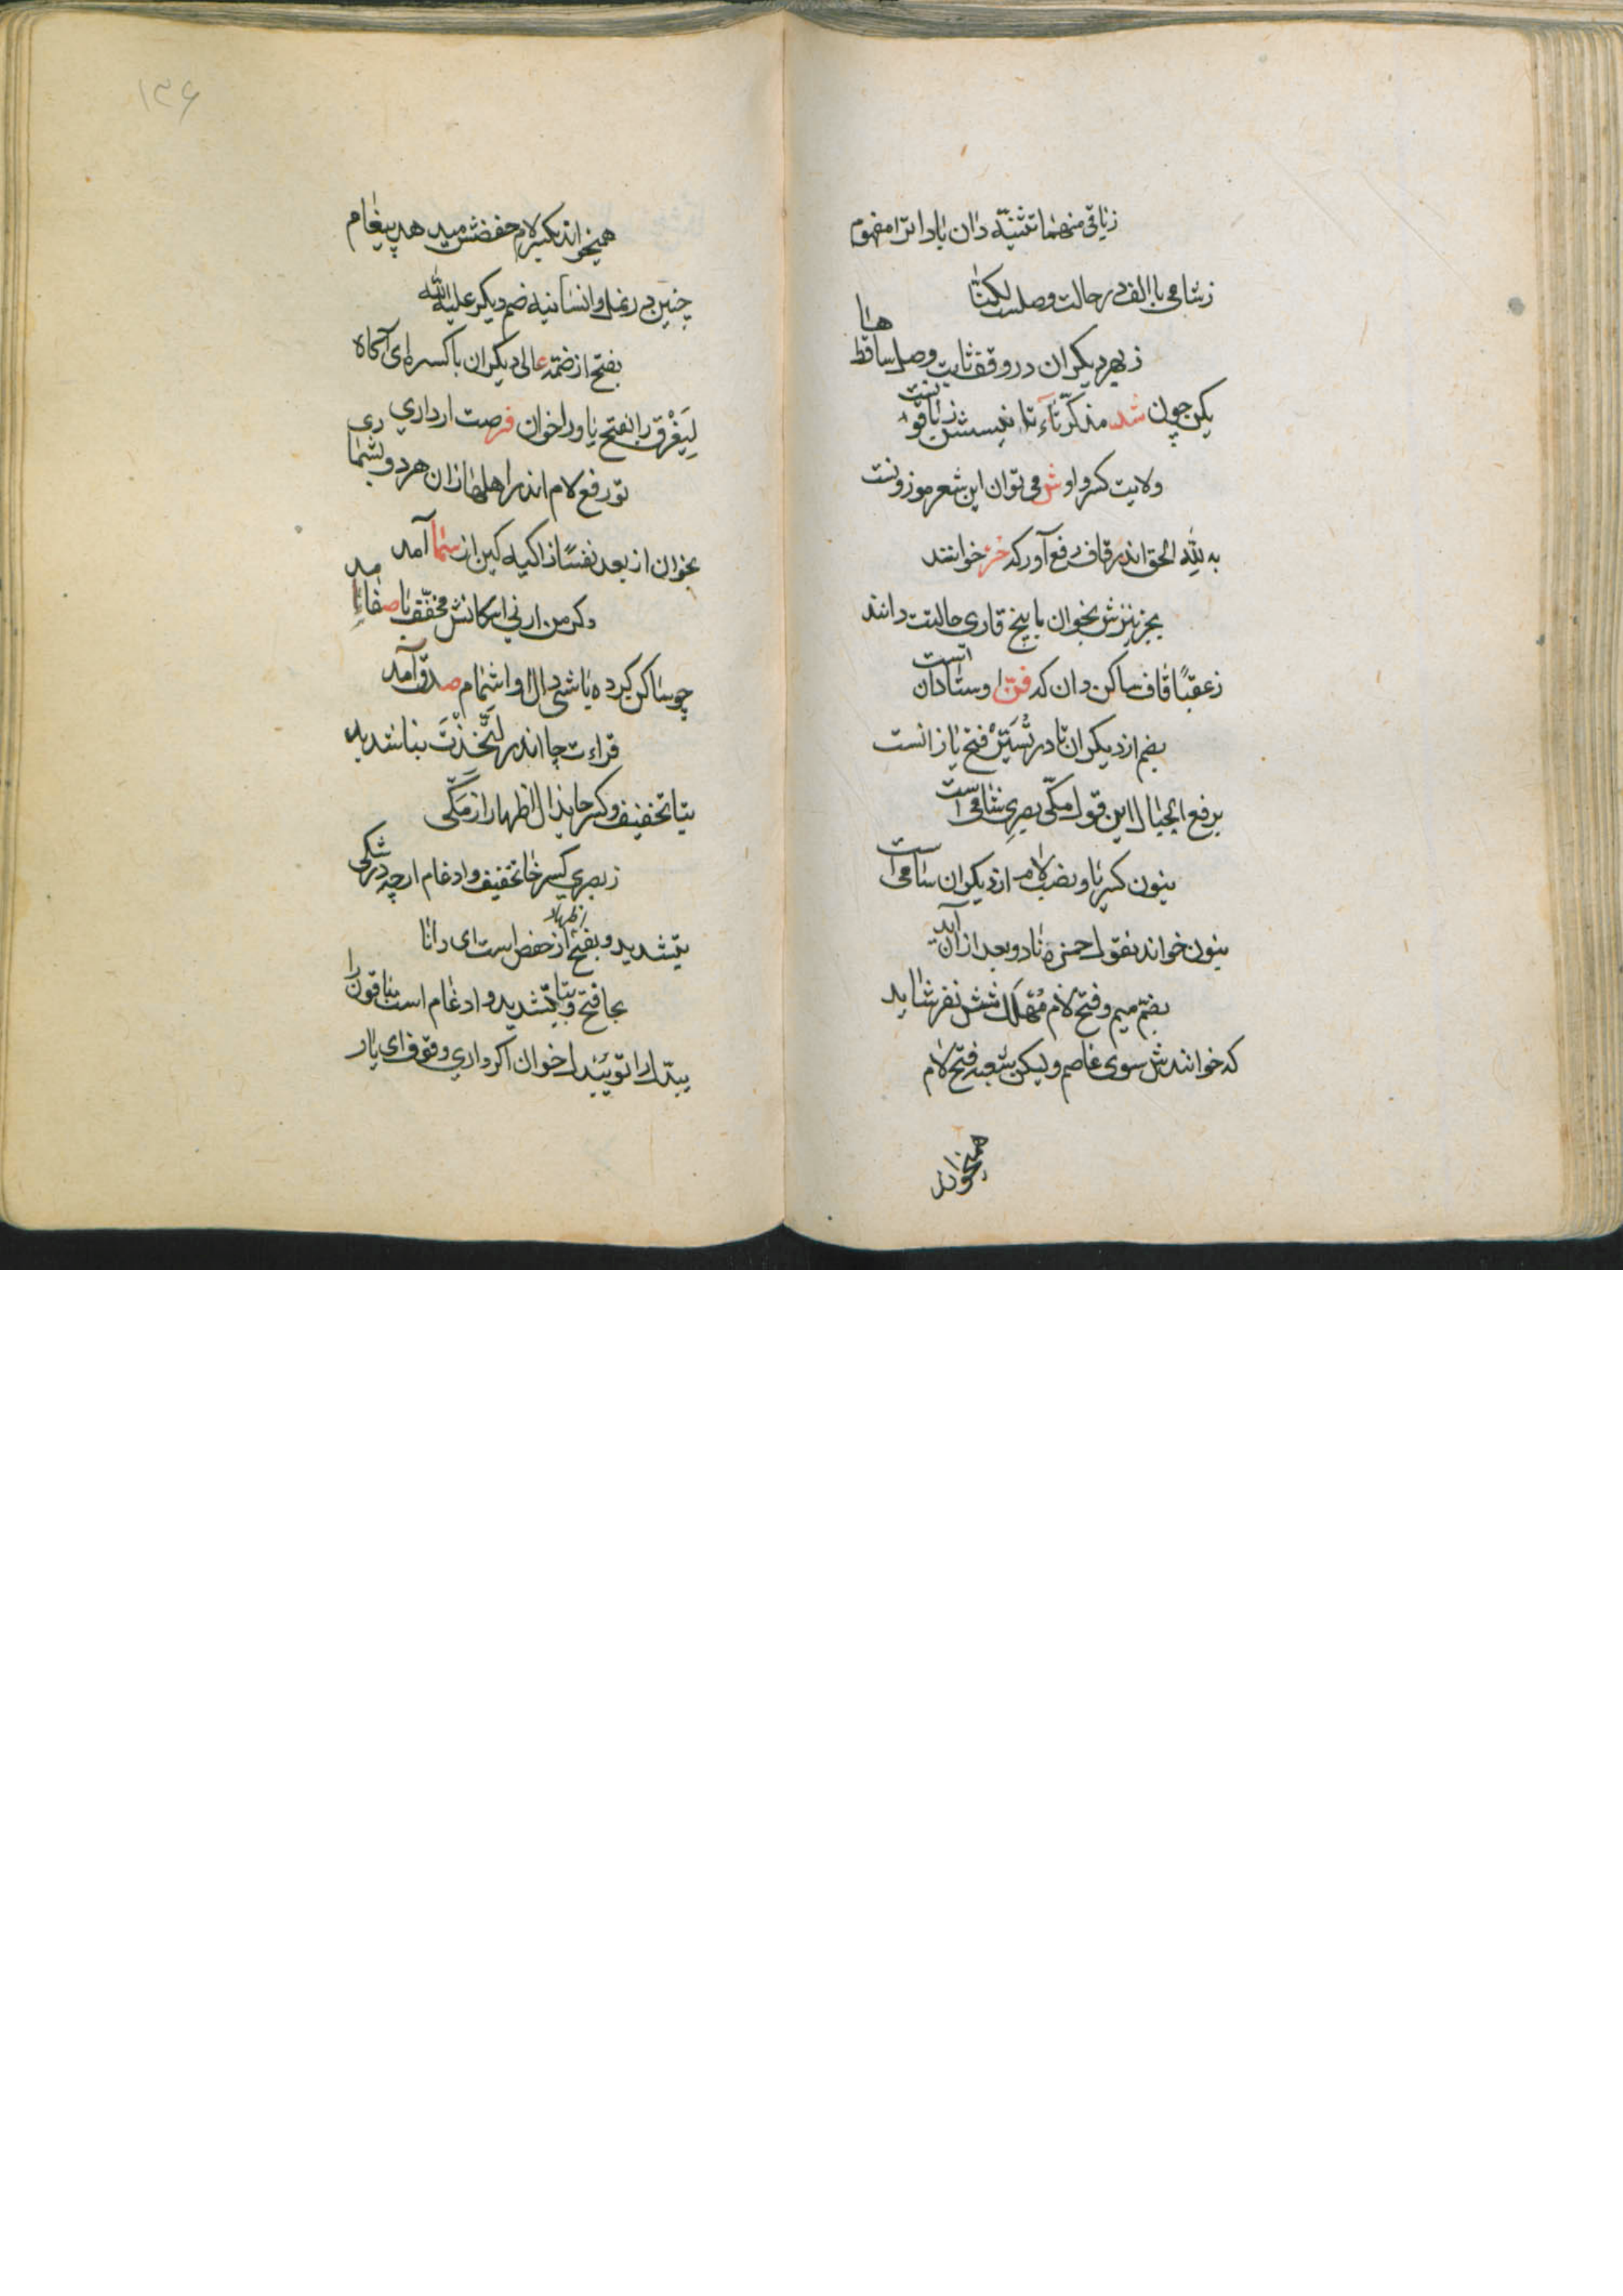 زباقی منهما تثنیه دان باد اترا مفهوم
زشامی با الف در حالت وصلست لکنّا
زبهر دیگران در وقف ثابت وصل ساقط هنا
یکن چون شد مذکر تاء
ولایت کسر واوش می توان این شعر موزونست
به لله الحق اندر قاف رفع آور که خز خوانند
بجز بخوان با پنج قاری حالتت دانند
زعقبًا قاف ساکن دان که فتیٰ اوستادان است
بضم از دیگران تا در نُسَیِّرُ فتح یا زانست
برفع الجبال این قول مکّی بصری شامی است
بنون کسر یا و نصب لام از دیگران سامی است
بنون خواند نقول حمزه نادو بعد از آن آید
بضم میم و فتح لام مُهلَك شش نفر شاید
که خوانندش سوی عاصم ولیکن شعبه فتح لام
همیخواند
۱۳۶
همیخواند بکسر لام حفضش میدهد پیغام
چنین در نمل و انسانیه ضم دیگر علیه الله
بفتح از ضمّه عالی دیگران با کسره ای آگاه
لِیَغْرَقَ را بفتح یا و را خوان فرصت ار داری
تو رفع لام اندر اهلها زان هر دو بشمارى
بخوان از بعد نفسًا زاکیه کین از سما آمد
دگر من لدنی اسکانش مخفّف با صفا آمد
چو ساکن کرده باشی دال او اشمام صدق آمد
قراءت چا اندر لَتَّخَذْتَ بنا شدید
بتا تخفیف و کسر خا بذال اظهار از مکّی
زبصری کسر خا تخفیف و ادغام ارچه در شکی
بتشدید و بفتح اظهار از حفص است ای دانا
بخا فتح و بتا تشدید و ادغام است باقون را
یبدل را تو یُبْدِل خوان اگر داری وقوف ای یار